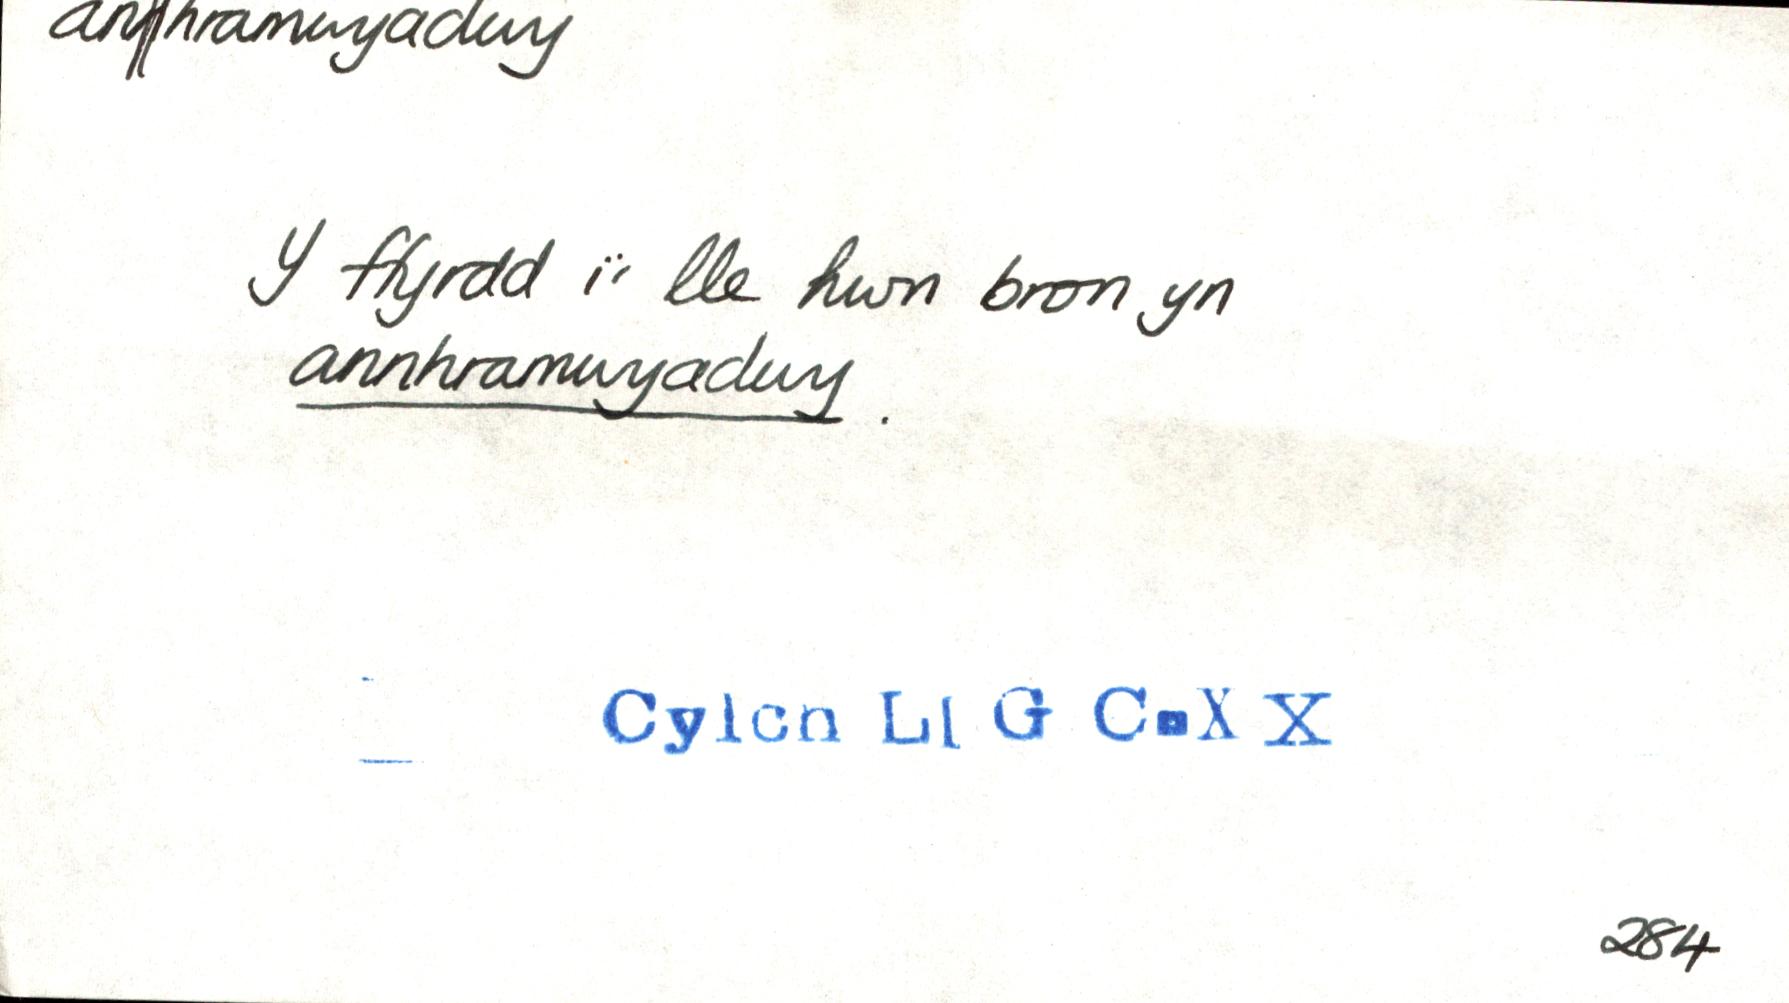 an||hramwyadwy
Y ffyrdd i'r lle hwn bron yn
annhramwyadwy.
Cylcn Ll G C.X X
284